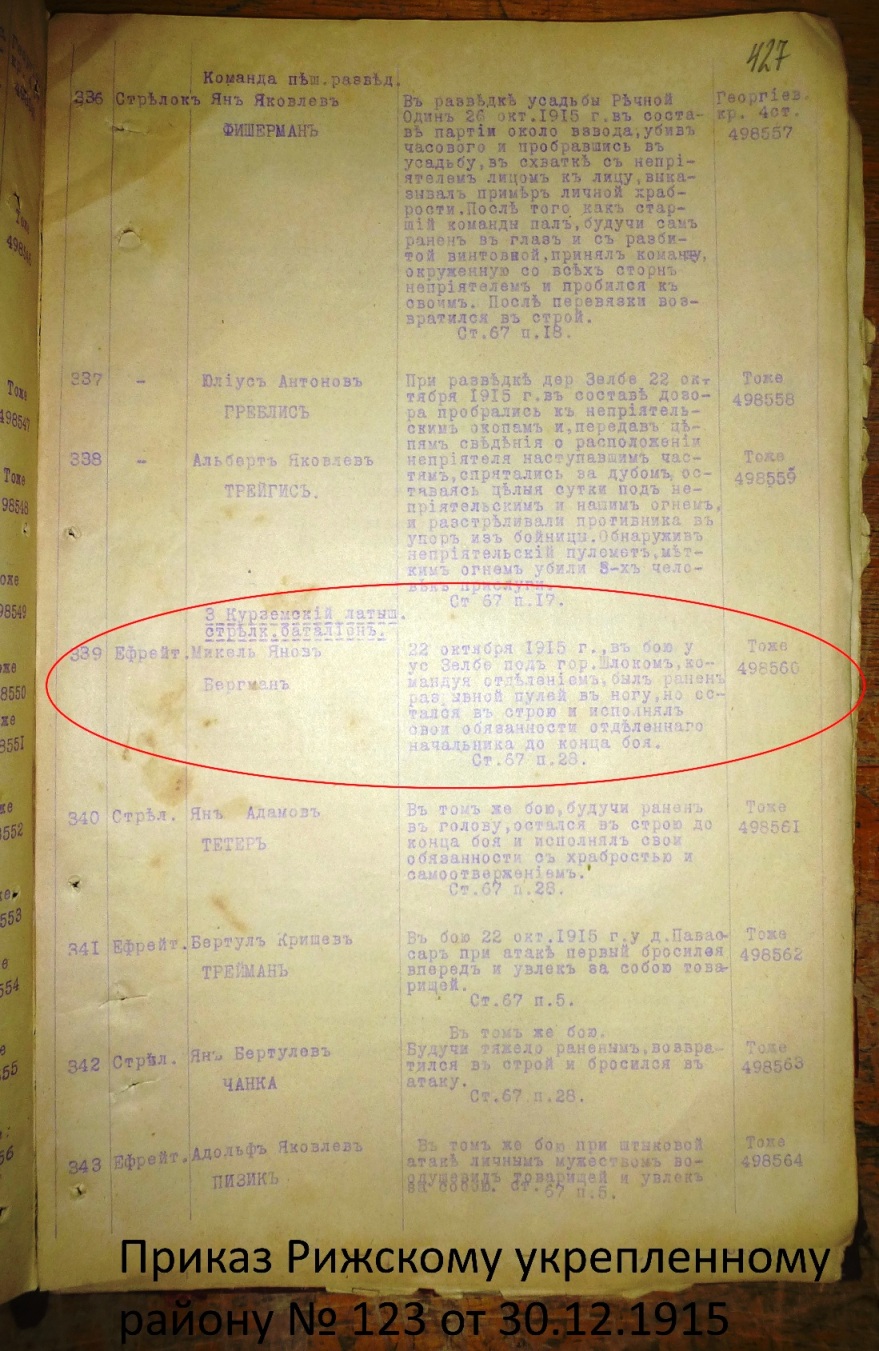 427
Команда пѣш.развѣд.
336 Стрѣлокъ Янъ Яковлевъ
ФИШЕРМАНЪ
Въ развѣдкѣ усадьбы Рѣчной
Одинъ 26 окт.1915 г.въ соста-
вѣ партіи около взвода,убивъ
часового и пробравшись въ
усадьбу,въ схваткѣ съ непрі-
ятелемъ лицомъ къ лицу,выка-
зывалъ примѣръ личной храб-
рости.Послѣ того какъ стар-
шій команды палъ,будучи самъ
раненъ въ глазъ и съ разби-
той винтовной,принялъ команду,
окруженную со всѣхъ сторнъ
непріятелемъ и пробился къ
своимъ. Послѣ перевязки воз-
вратился въ строй.
Ст.67 п.I8.
Георгіев.
кр. 4ст.
498557
337 - Юліусъ Антоновъ
ГРЕБЛИСЪ
338 - Альбертъ Яковлевъ
ТРЕЙГИСЪ.
При развѣдкѣ дер Зелбе 22 ок-
тября 1915 г.въ составѣ дозо-
ра пробрались къ непріятель-
скимъ окопамъ и,передавъ цѣ-
пямъ свѣдѣнія о расположеніи
непріятеля наступавшимъ час-
тямъ,спрятались за дубомъ,ос-
таваясь цѣлыя сутки подъ не-
пріятельскимъ и нашимъ огнемъ,
и разстрѣливали противника въ
упоръ изъ бойницы.Обнаруживъ
непріятельскій пулеметъ,мѣт-
кимъ огнемъ убили 3-хъ чело-
вѣкъ прислуги.
Ст 67 п.I7.
Тоже
498558
Тоже
498559
3 Курземскій латыш.
стрѣлк.баталіонъ.
339 Ефрейт.Микель Яновъ
Бергманъ
22 октября 1915 г.,въ бою у
ус Зелбе подъ гор.Шлокомъ,ко-
мандуя отдѣленіемъ,былъ раненъ
раз ывной пулей въ ногу,но ос-
тался въ строю и исполнялъ
свои обязанности отдѣленнаго
начальника до конца боя.
Ст.67 п.28.
Тоже
498560
340 Стрѣл. Янъ Адамовъ
ТЕТЕРЪ
Въ томъ же бою,будучи раненъ
въ голову,остался въ строю до
конца боя и исполнялъ свои
обязанности съ храбростью и
самоотверженіемъ.
Ст.67 п.28.
Тоже
498561
341 Ефрейт.Бертулъ Кришевъ
ТРЕЙМАНЪ
Въ бою 22 окт.1915 г.у д.Павас-
саръ при атакѣ первый бросился
впередъ и увлекъ за собою това-
рищей.
Ст.67 п.5.
Тоже
498562
342 Стрѣл. Янъ Бертулевъ
ЧАНКА
Въ томъ же бою.
Будучи тяжело раненымъ,возвра-
тился въ строй и бросился въ
атаку.
Ст.67 п.28.
Тоже
498563
343 Ефрейт.Адольфъ Яковлевъ
ПИЗИКЪ
Въ томъ же бою при штыковой
атакѣ личнымъ мужествомъ во-
одушевилъ товарищей и увлекъ
за собою. Ст.67 п.5.
Тоже
498564
Приказ Рижскому укрепленному
району № 123 от 30.12.1915